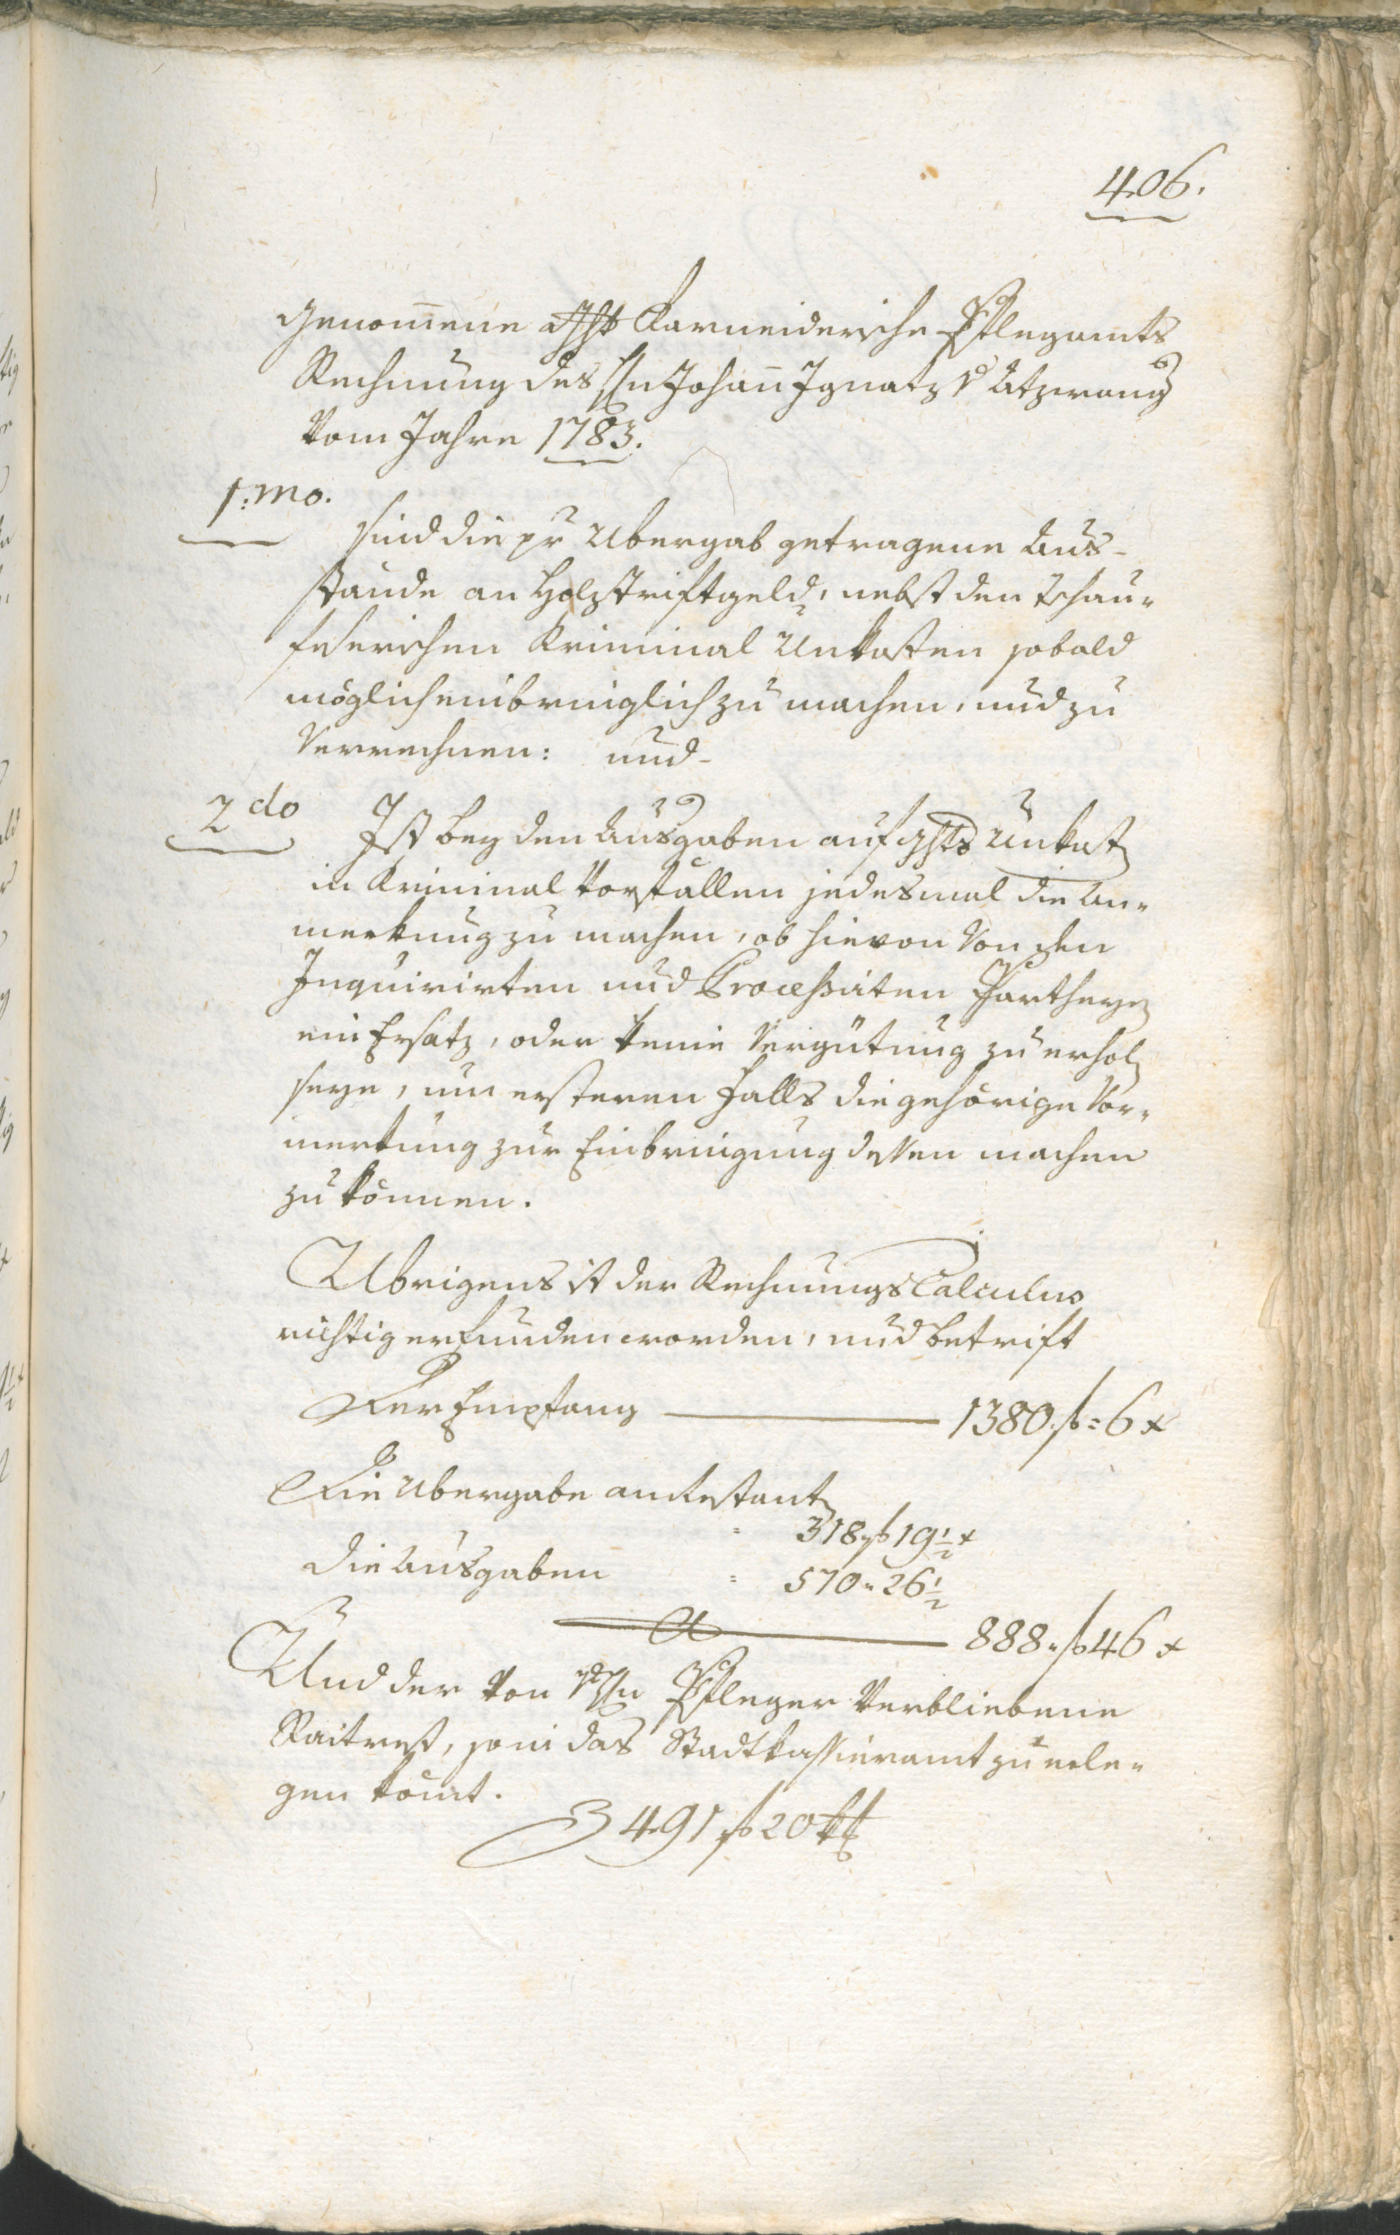 406.
genom̄ene Karneidische Pflegamts
Rechnung des Hn Johañ Ignatz v Atzwang
vom Jahre 1783.
1:mo.
sind die pr Ubergab getragene Aus-
stände an Holztriftgeld, nebst den Tschau-
feserischen Kriminal Unkosten sobald
möglich einbringlich zu machen, und zu
verrechnen: und-
2do
Ist bey den Ausgaben auf Unkost
in Kriminal Vorfällen jedesmal die An-
merkung zu machen, ob hievon von den
Inquirirten und Processirten Partheyen
ein Ersatz, oder keine Vergütung zu erholen
seye, um ersteren Falls die gehörige Vor-
merkung zur Einbringung dessen machen
zu können.
Ubrigens ist der Rechnungs Calculus
richtig erfunden worden, und betrift
Der Empfang — 1380 f = 6 x
Die Ubergabe an Restanten
= 318 " f 19 1/2 x
die Ausgaben = 570 " 26 1/2
888 " f 46 x
Und der von Hn Pfleger verbliebene
Raitrest, so in das Stadtkassieramt zu erle-
gen kom̄t.
491 f 20 x